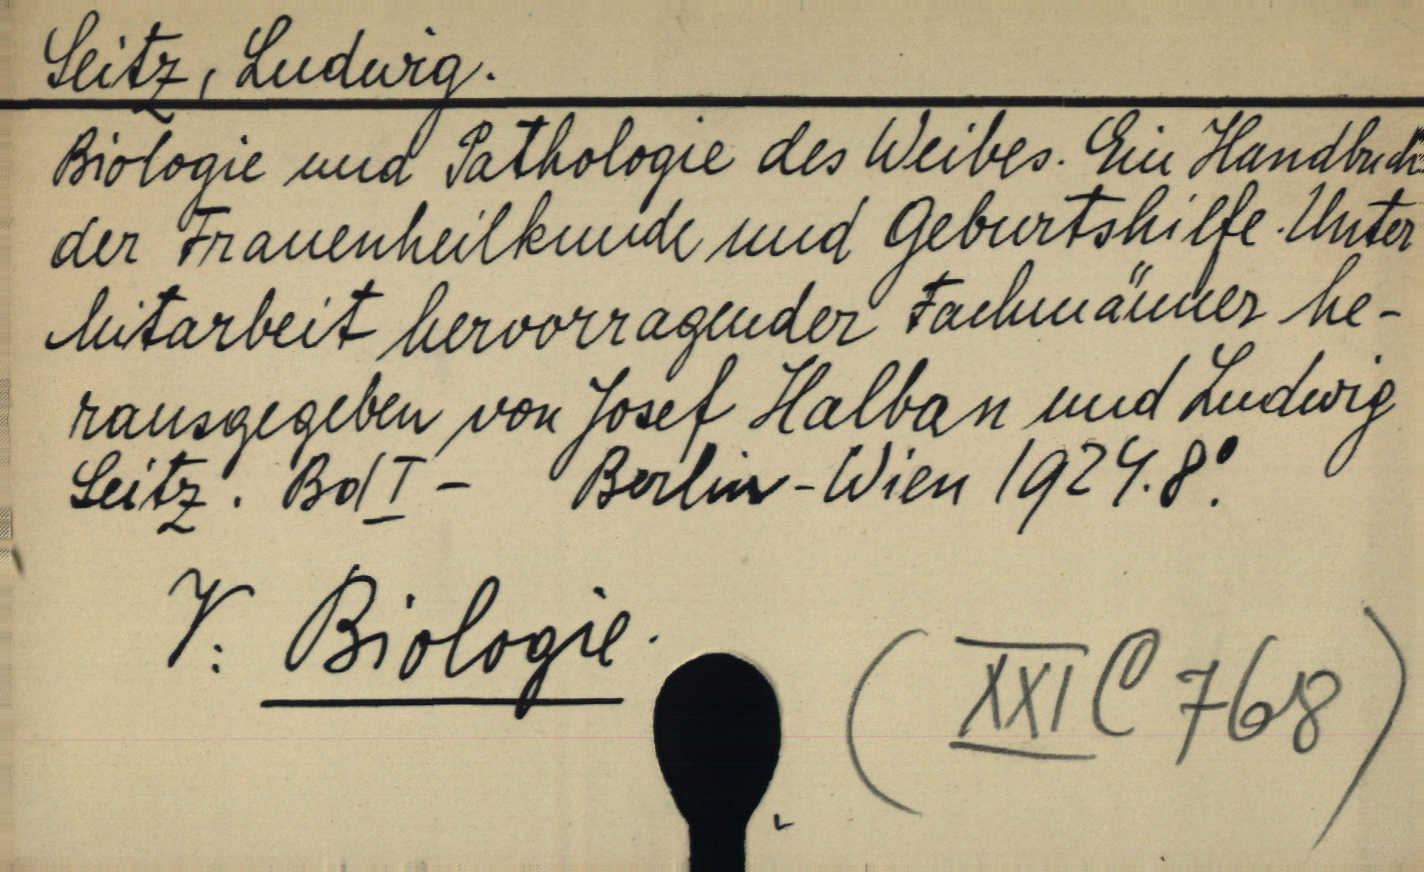 Seitz, Ludwig.
Biologie und Pathologie des Weibes. Ein Handbuch
der Frauenheilkunde und Geburtshilfe. Unter
Mitarbeit hervorragender Fachmänner he-
rausgegeben von Josef Halban und Ludwig
Seitz. Bd I - Berlin-Wien 1924. 8°.
V: Biologie.
(XXI C 768)